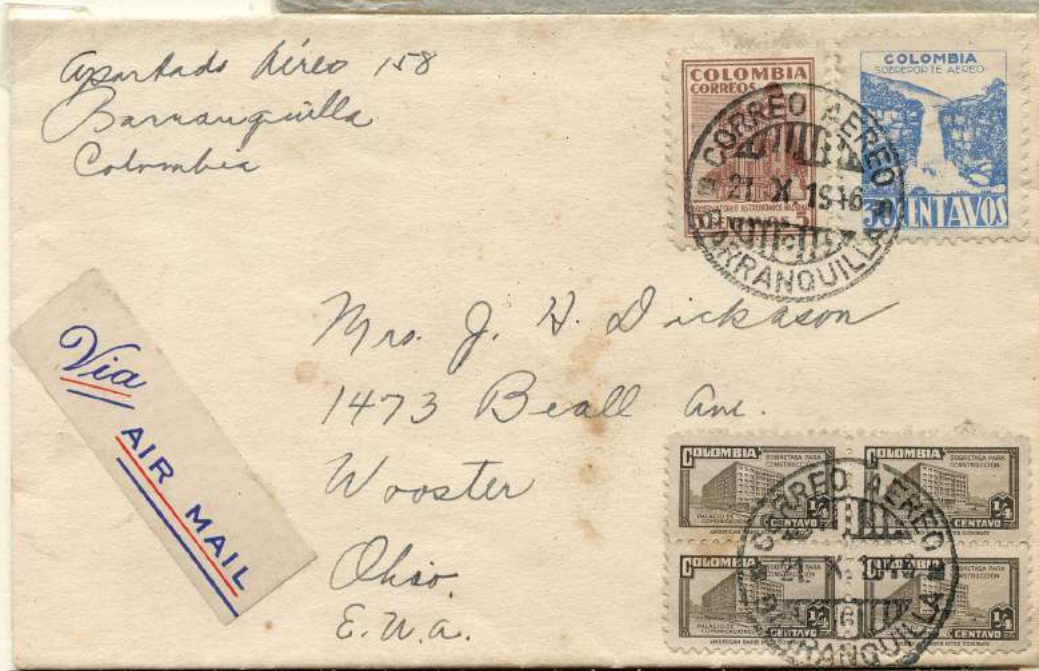 Apartado Aéreo 158
Barranquilla
Colombia
COLOMBIA
CORREOS
OBSERVATORIO ASTRONOMICO NACIONAL
CENTAVOS 5
COLOMBIA
SOBREPORTE AEREO
30 CENTAVOS
CORREO AEREO
21 X 1946
BARRANQUILLA
Via
AIR MAIL
Mrs. J. H. Dickason
1473 Beall Ave.
Wooster
Ohio.
E.U.A.
COLOMBIA
SOBRETASA PARA
CONSTRUCCION
PALACIO DE
COMUNICACIONES
1/4
CENTAVO
COLOMBIA
SOBRETASA PARA
CONSTRUCCION
1/4
CENTAVO
COLOMBIA
SOBRETASA PARA
CONSTRUCCION
PALACIO DE
COMUNICACIONES
1/4
CENTAVO
COLOMBIA
SOBRETASA PARA
CONSTRUCCION
1/4
CENTAVO
CORREO AEREO
21 X 1946
BARRANQUILLA